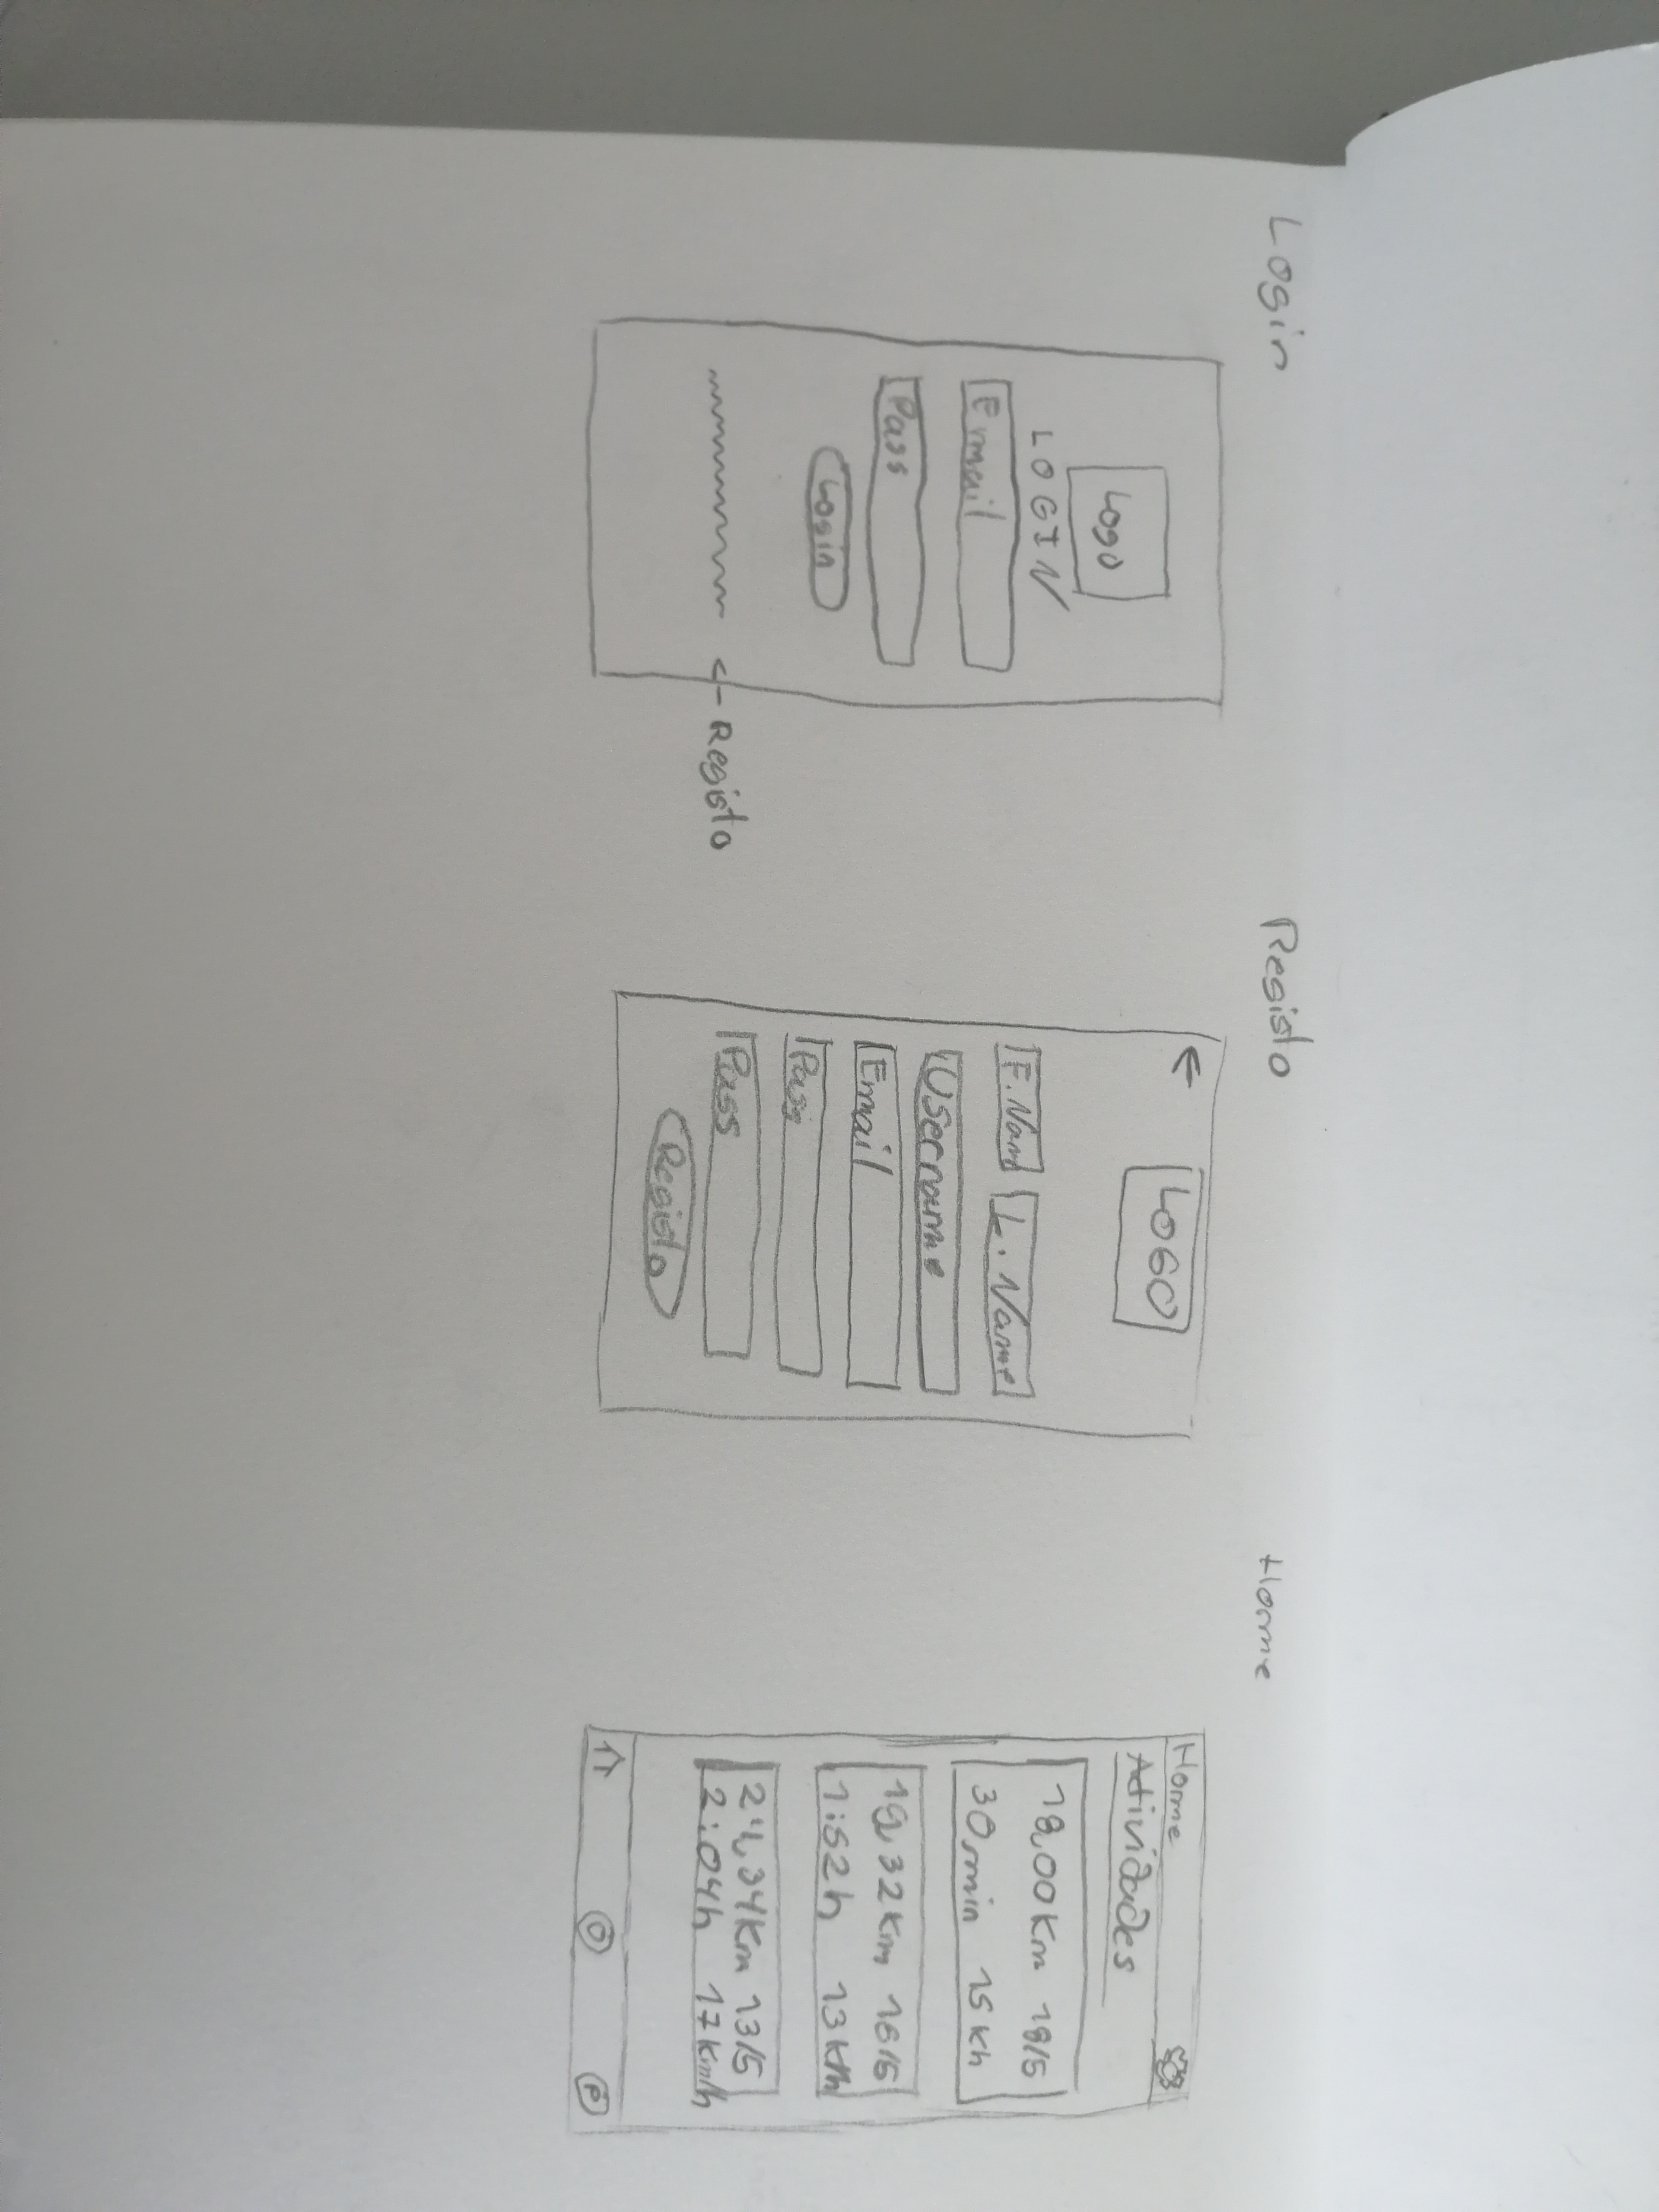 Login
Logo
LOGIN
Email
Pass
Login
<- Registo
Registo
LOGO
F. Nam
L. Name
Username
Email
Pass
Pass
Registo
Home
Home
Atividades
18,00 Km 18/5
30 min 15 Kh
19,32 Km 16/5
1:52 h 13 Km/h
24,34 Km 13/5
2:04h 17 Km/h
O
P